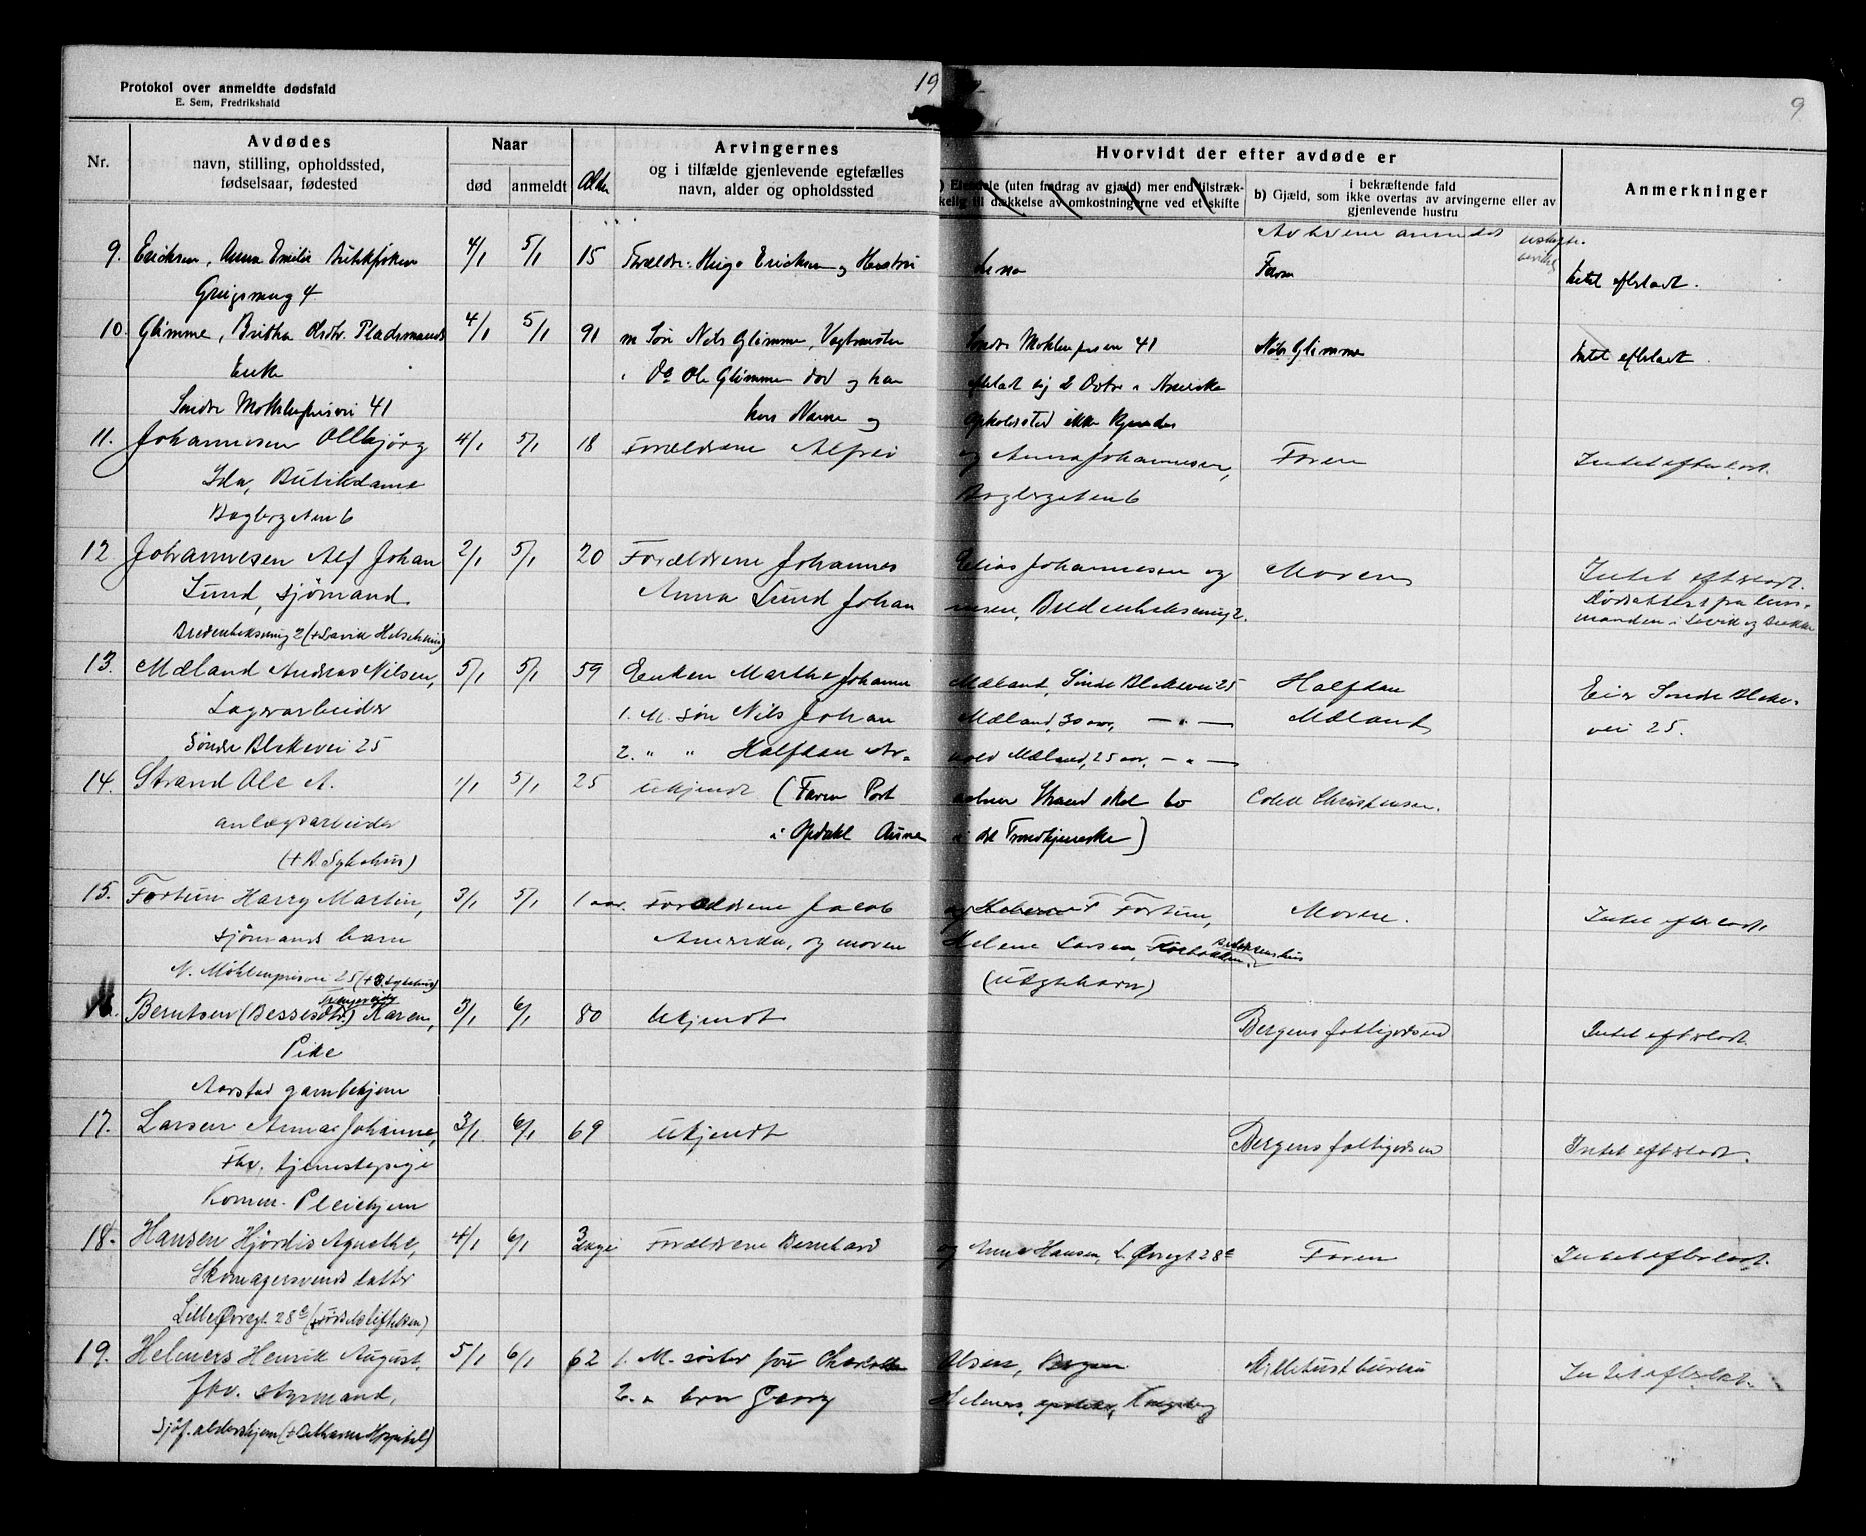 19
9
Protokol over anmeldte dødsfald
E. Sem, Fredrikshald
Nr.
Avdødes
navn, stilling, opholdssted,
fødselsaar, fødested
Naar
død
anmeldt
Alder
Arvingernes
og i tilfælde gjenlevende egtefælles
navn, alder og opholdssted
Hvorvidt der efter avdøde er
a) Eiendele (uten fradrag av gjæld) mer end tilstræk-
kelig til dækkelse av omkostningerne ved et skifte
i bekræftende fald
b) Gjæld, som ikke overtas av arvingerne eller av
gjenlevende hustru
Anmerkninger
Av hvem anmeldt
9. Ericksen, Anna Emilie 4/1 5/1 15 Forældre: Hugo Ericksen og Hustru Faren Intet efterladt.
Griegsmug 4
10. Glimme, Britha Olsdtr. Pladsmands 4/1 5/1 91 m Søn Nils Glimme, Vagtmester Søndre Møhlenprisvei 41 Nils Glimme Intet efterladt.
Enke Do Ole Glimme død og han
Søndre Møhlenprisvei 41 hvis Navne og opholdssted ikke kjendes
11. Johannesen Ollbjørg 4/1 5/1 18 Forældrene Alfred og Anna Johannesen, Faren Intet efterladt.
Ida, Butikdame
12. Johannesen Alf Johan 2/1 5/1 20 Forældrene Johannes Elias Johannesen og Moren Intet efterladt.
Lund, sjømand. Anna Lund Johan nesen, Bredenbeksmug 2. Dødsattest fra lens-
Bredenbeksmug 2 manden i
13. Mæland Andreas Nilsen, 5/1 5/1 59 Enken Marthe Johanne Mæland, Søndre Blekevei 25 Halfdan Eier Søndre Bleke-
Lagerarbeider 1. M. søn Nils Johan Mæland, 30 aar, — " — Mæland vei 25.
Søndre Blekevei 25 2. " " Halfdan Ar- nold Mæland, 25 aar, — " —
14. Strand Ole A. 1/1 5/1 25 Ukjendt (Faren Strand skal bo Christensen.
anlægsarbeider i Opdahl i det Trondhjemske)
(+ B. Sykehus)
15. Fortun Harry Martin, 3/1 5/1 1 aar. Forældrene Jacob Fortun, Moren. Intet efterladt.
sjømands barn Amerika, og moren Helene Larsen,
N. Møhlenprisvei 25 (+ B. Sykehus) (uegte barn)
16. Berntsen (Bessesdtr.) Karen, 3/1 6/1 80 Ukjendt Bergens fattigvæsen Intet efterladt.
Pike
Aarstad gamlehjem
17. Larsen Anna Johanne, 3/1 6/1 69 Ukjendt Bergens fattigvæsen Intet efterladt.
Fhv. tjenestepige
Komm. Pleiehjem
18. Hansen Hjørdis Agnethe, 4/1 6/1 3 dage Forældrene Bernhard og Anna Hansen, L. Øvregt. 28e Faren Intet efterladt.
Skomagersvends datter
Lille Øvregt. 28e (+ Fødselsstiftelsen)
19. Helmers Henrik August, 5/1 6/1 62 1. M. søster fru Charlotte Olsen, Bergen Intet efterladt.
fhv. styrmand, 2. " bror Georg Helmers, Kragerø
Sjøf. aldershjem (+ Hospital)